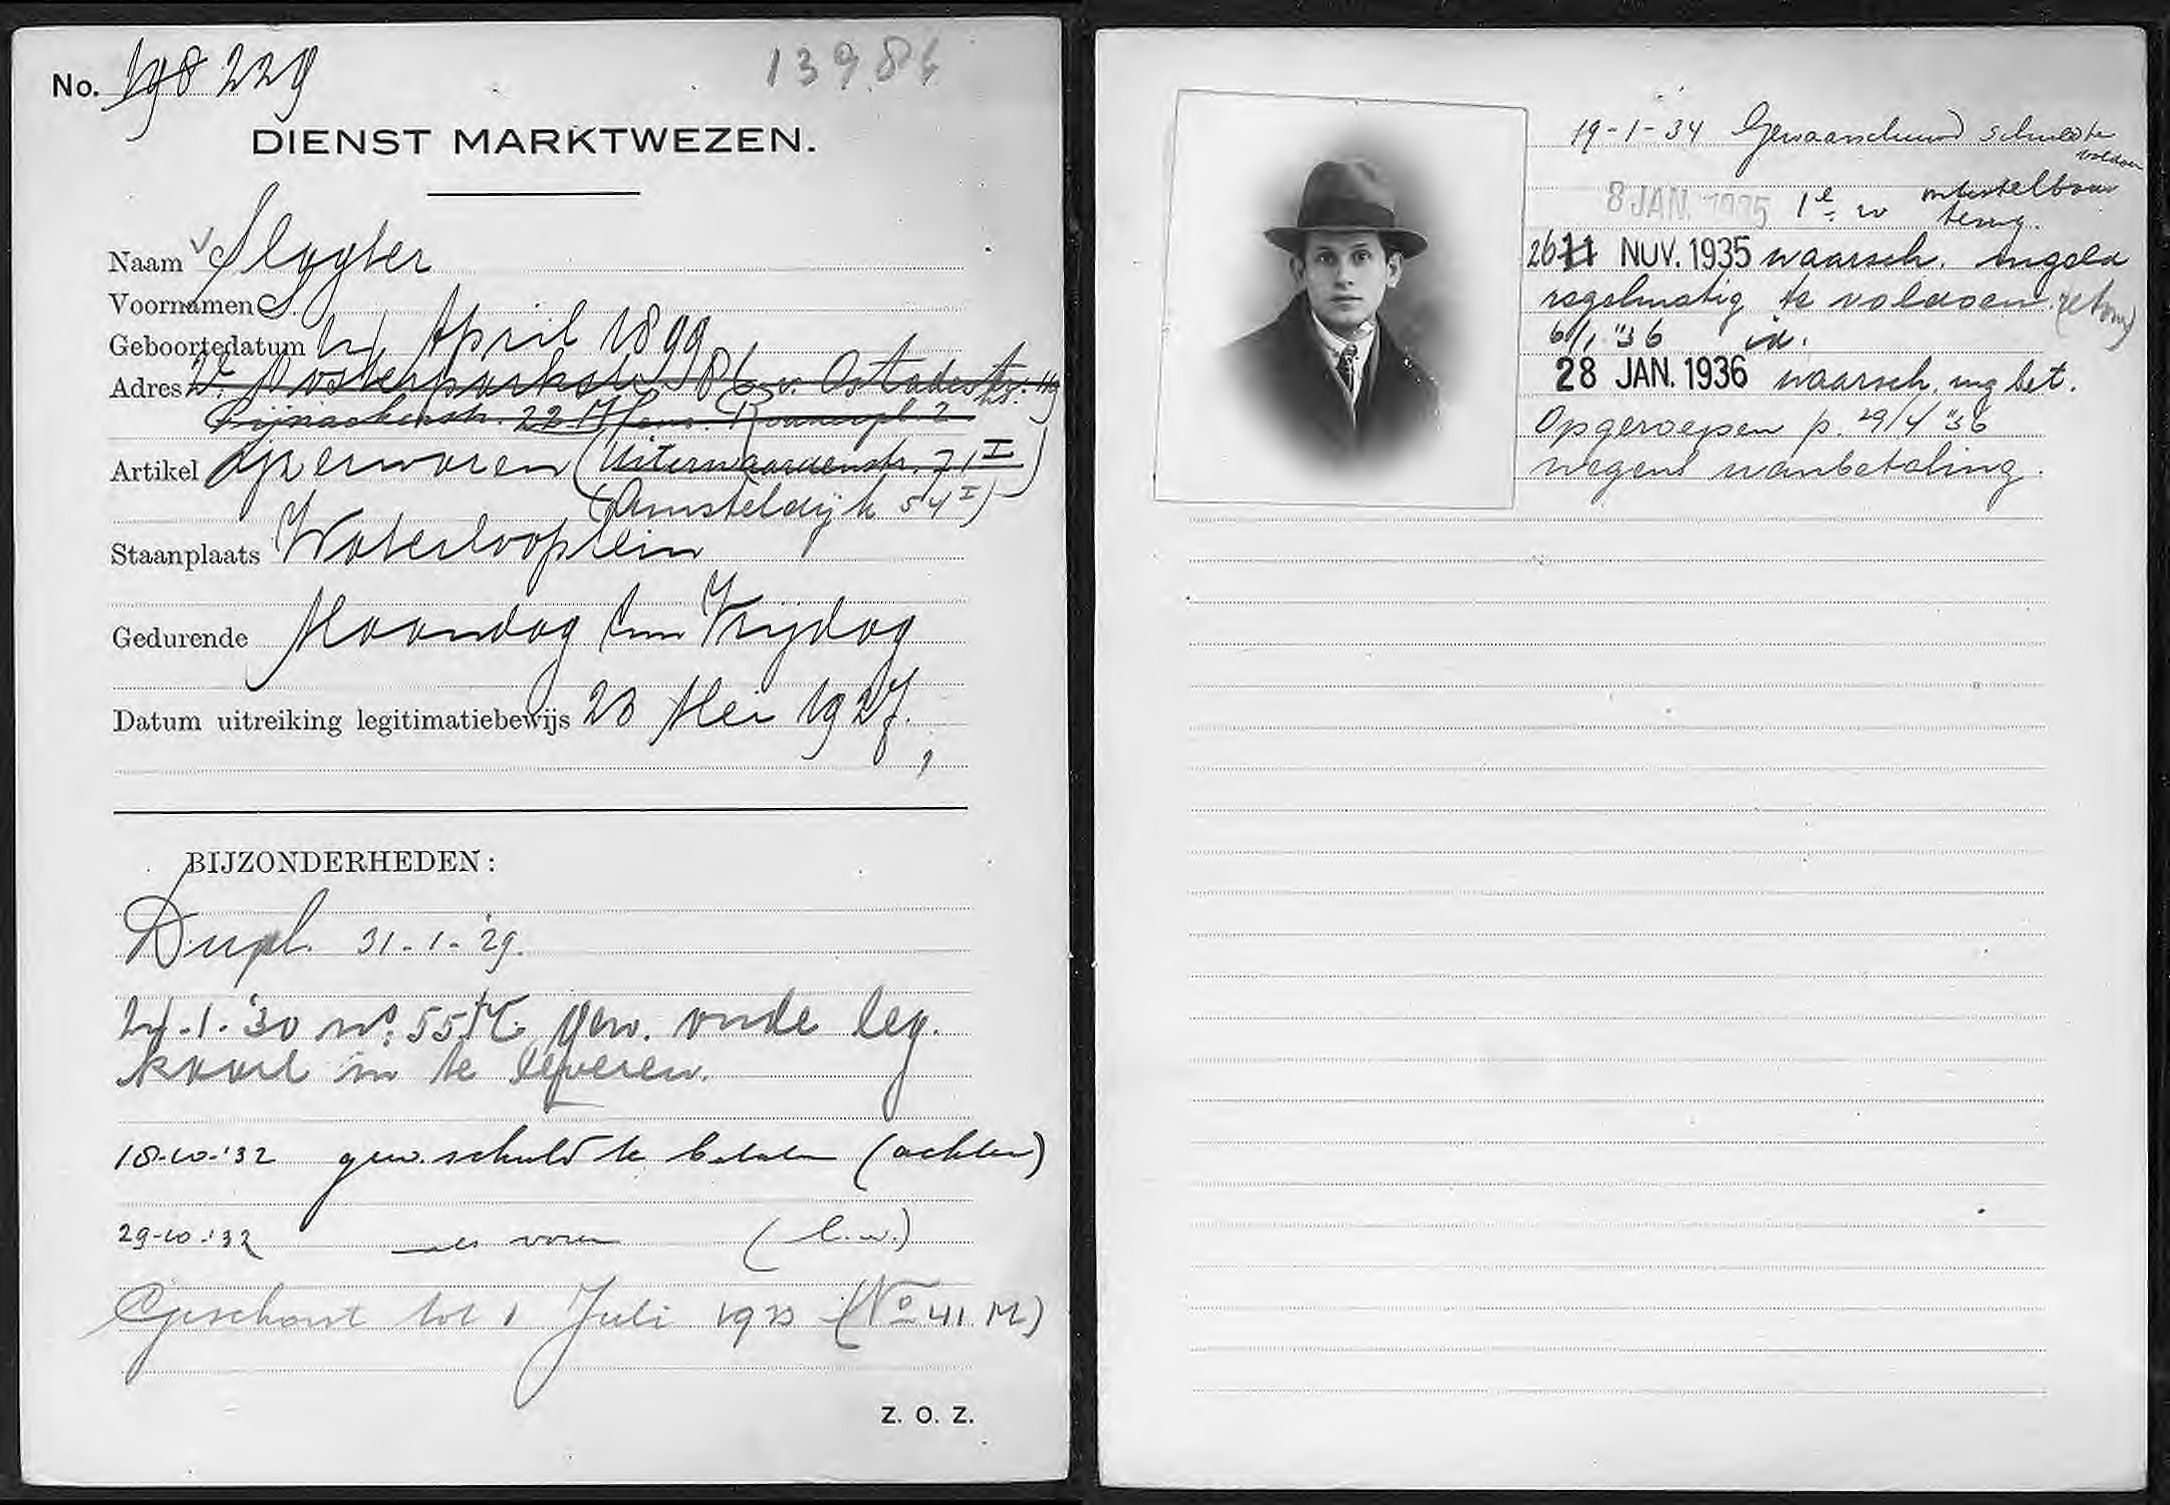 No. 198 229
13984
DIENST MARKTWEZEN.
Naam Slagter
Voornamen S.
Geboortedatum 24 April 1899
Adres 2e Oosterparkstr. 186 v. Ostadestr. 119
Pijnackerstr. 22 II
Artikel ijzerwaren (Uiterwaardenstr. 71 I)
(Amsteldijk 54 I)
Staanplaats Waterlooplein
Gedurende Maandag t/m Vrijdag
Datum uitreiking legitimatiebewijs 23 Mei 1927.
BIJZONDERHEDEN:
Dupl. 31-1-'29.
24-1-'30 no. 55 gew. oude leg.
kaart in te leveren.
18-10-'32 gew. schuld te betalen (achter)
29-10-'32 als voren (l.w.)
Geschorst tot 1 Juli 1933 (No 41 M)
Z. O. Z.
19-1-34 Gewaarschuwd schuld te
voldoen
8 JAN. 1935 1e w onbestelbaar
terug.
26 11 NOV. 1935 waarsch. mgeld
regelmatig te voldoen. (retour)
6/1 '36 id.
28 JAN. 1936 waarsch. mg bet.
Opgeroepen p. 29/4 '36
wegens wanbetaling.